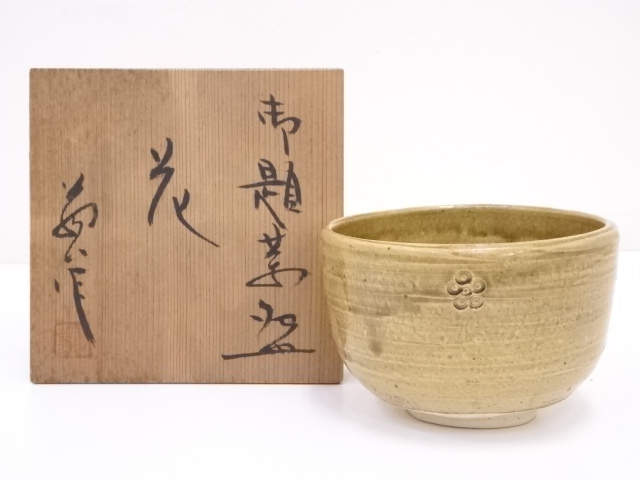 御題茶盌
花